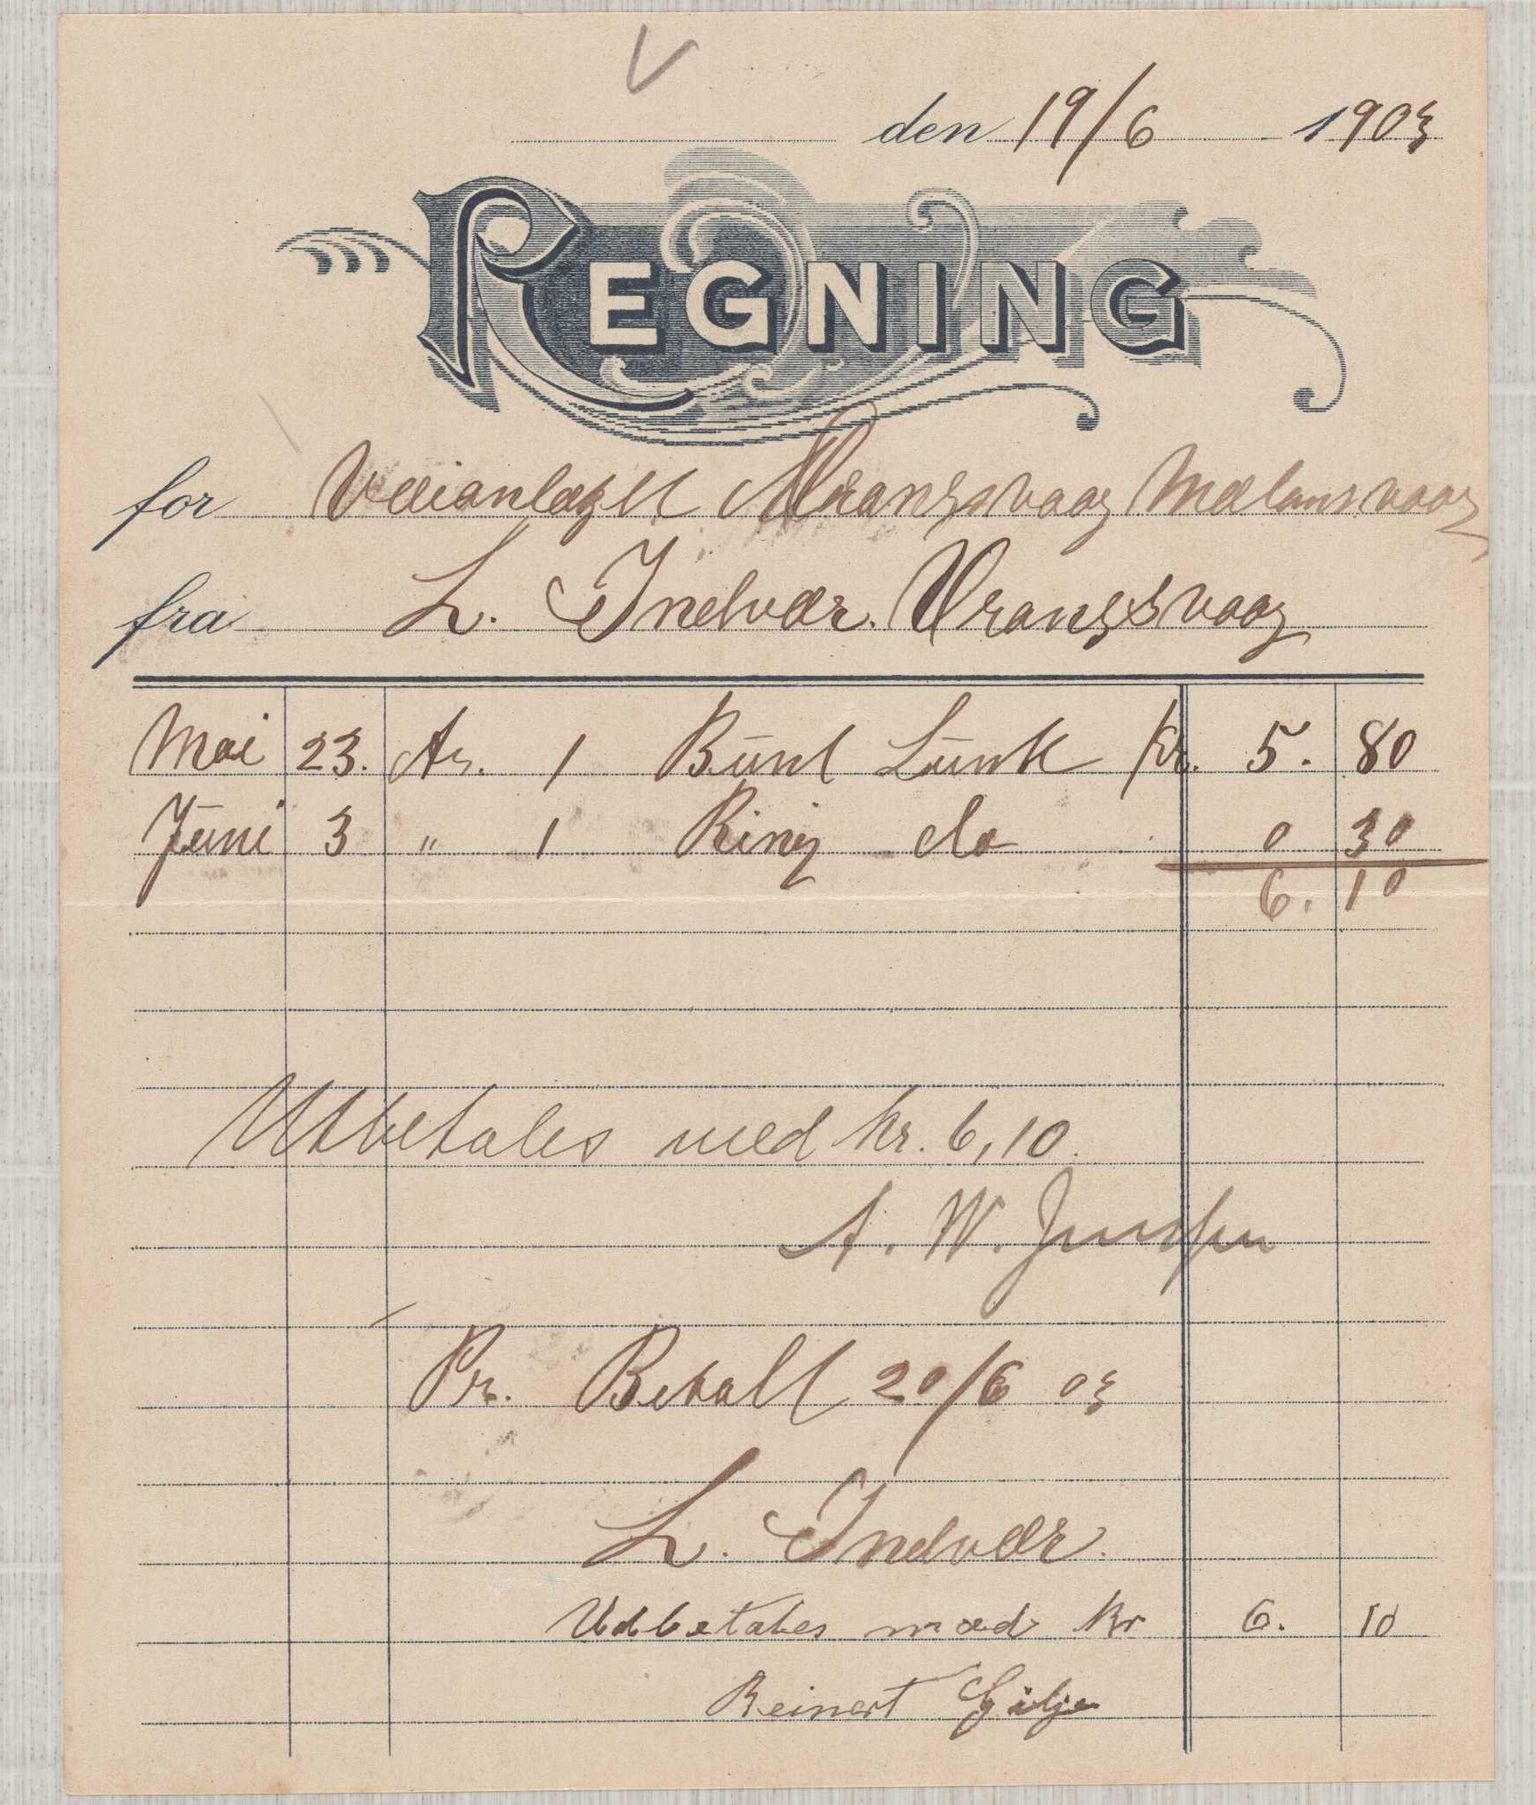 den 19/6 1903
REGNING
for Veianlægget Vrangsvaag Mælandsvaag
fra L. Indvær. Vrangsvaag
Mai 23. An. 1 Bundt Lunte Kr. 5. 80
Juni 3 " 1 Ring do 0 30
6. 10
Utbetales med kr. 6,10.
A. W.
Pr. Betalt 20/6 03
L. Indvær.
Udbetales med Kr 6. 10
Reinert Gilje